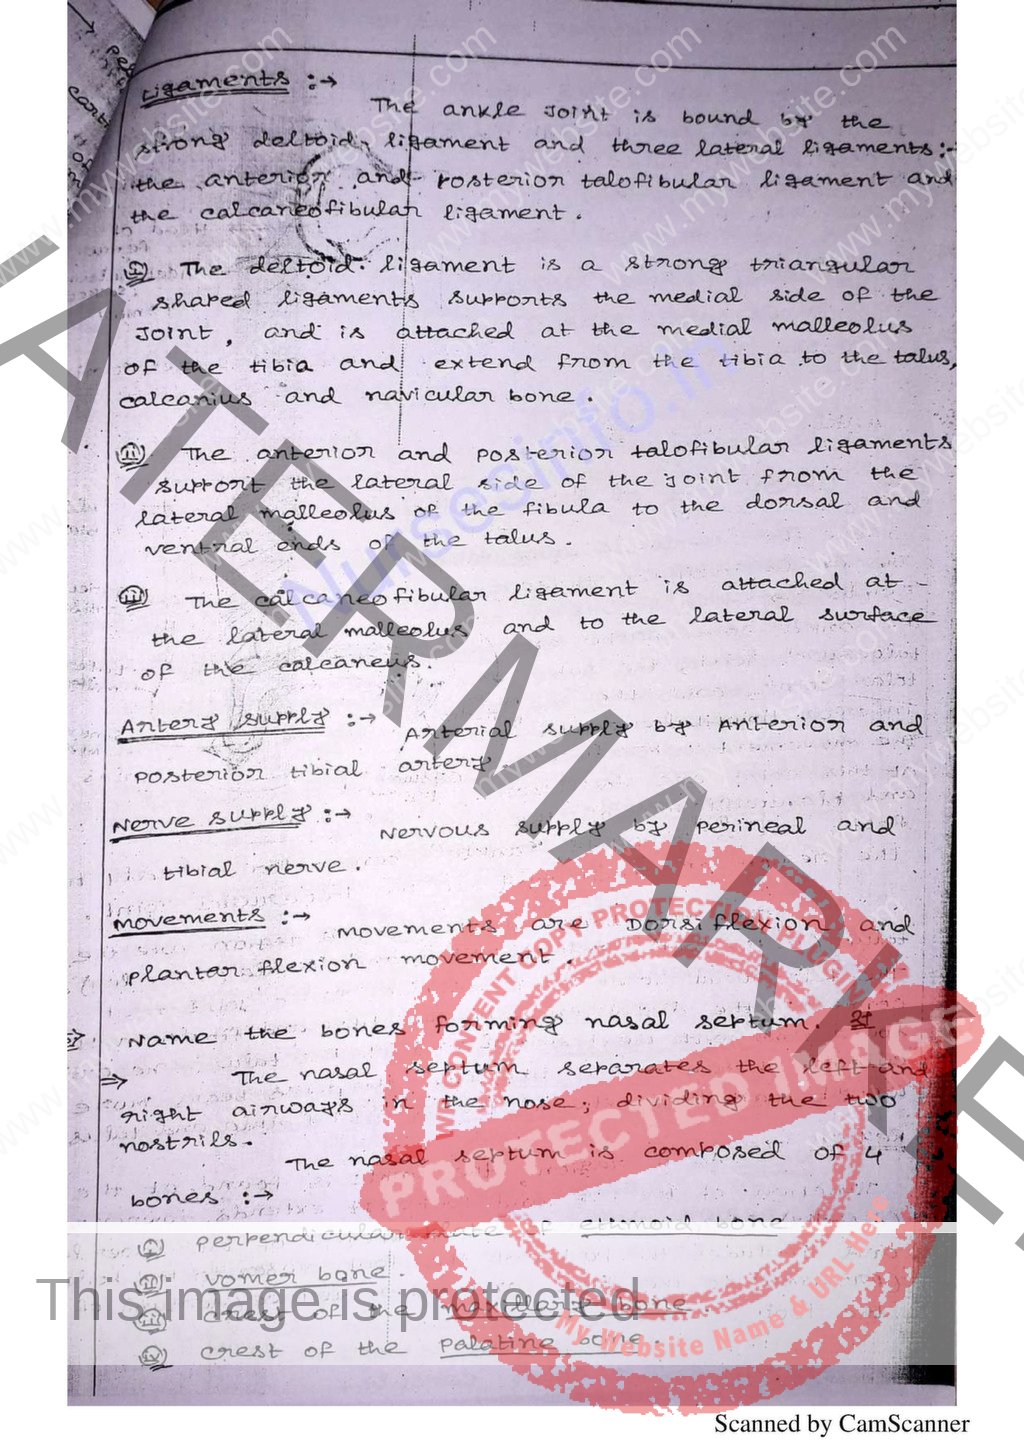 Ligaments :→
The ankle Joint is bound by the
strong deltoid ligament and three lateral ligaments :-
the anterior and Posterior talofibular ligament and
the calcaneofibular ligament.
(i) The deltoid ligament is a strong triangular
shaped ligaments supports the medial side of the
Joint, and is attached at the medial malleolus
of the tibia and extend from the tibia to the talus,
calcanius and navicular bone.
(ii) The anterior and posterior talofibular ligaments
support the lateral side of the joint from the
lateral malleolus of the fibula to the dorsal and
ventral ends of the talus.
(iii) The calcaneofibular ligament is attached at
the lateral malleolus and to the lateral surface
of the calcaneus.
Artery supply :→ Arterial supply by Anterior and
Posterior tibial artery.
Nerve supply :→ Nervous supply by perineal and
tibial nerve.
Movements :→ Movements are Dorsi flexion and
plantar flexion movement.
Name the bones forming nasal septum.
⇒ The nasal septum separates the left and
right airways in the nose, dividing the two
nostrils.
The nasal septum is composed of 4
bones :→
(i) perpendicular plate of ethmoid bone
(ii) vomer bone.
(iii) crest of the maxillary bone.
(iv) crest of the Palatine bone.
WATERMARKED
Nursesinfo.in
www.mywebsite.com
WP CONTENT COPY PROTECTION PLUGIN
PROTECTED IMAGE
My Website Name & URL Here
This image is protected
Scanned by CamScanner